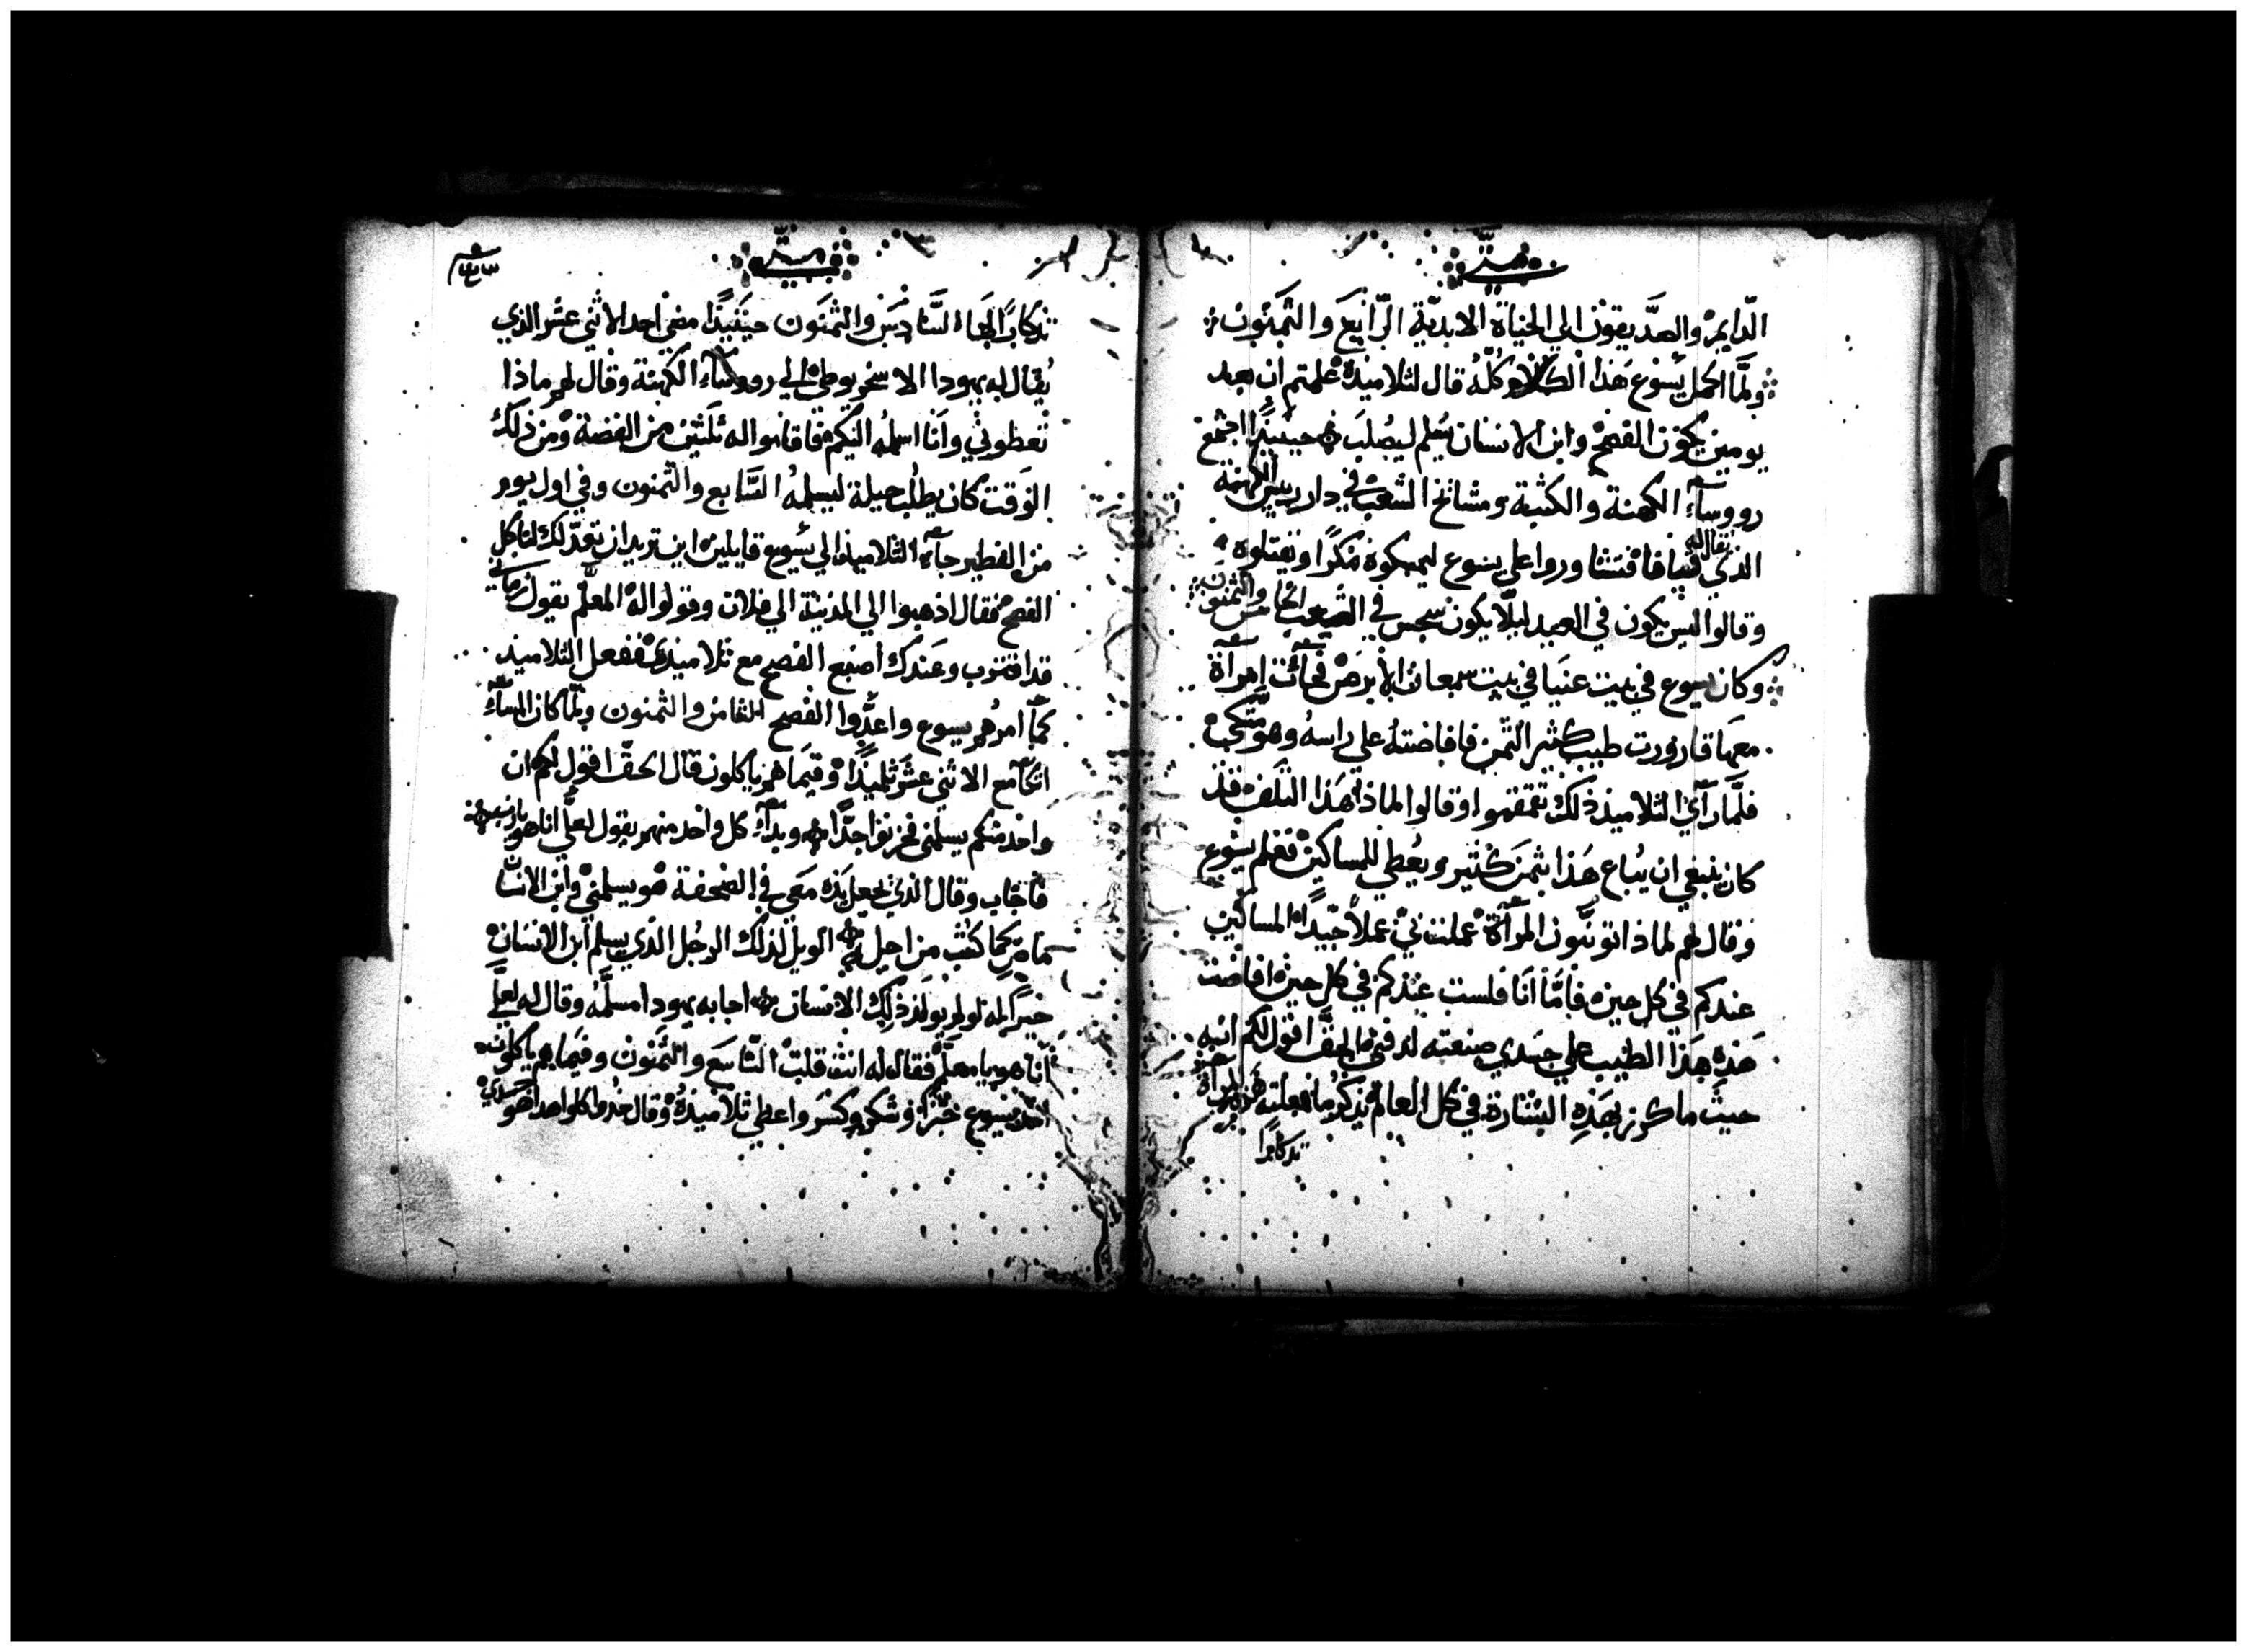 متي
الدايم والصديقون الي الحياة الابدية الرابع والثمنون
ولما اكمل يسوع هذا الكلام كله قال لتلاميذه علمتم ان بعد
يومين يكون الفصح وابن الانسان يسلم ليصلب حينيذ اجتمع
رووساء الكهنة والكتبة ومشائخ الشعب في دار رييس الكهنة
الذي يقال له قيافا فتشاوروا علي يسوع ليمسكوه مكرا ويقتلوه
وقالوا ليس يكون في العيد ليلا يكون سجس في الشعب الخامس والثمنون
وكان يسوع في بيت عنيا في بيت سمعان الابرص فجائت امرأة
معها قارورت طيب كثير الثمن فافاضته علي راسه وهو متكي
فلما رأي التلاميذ ذلك تمقتهوا وقالوا لماذا هذا التلف قد
كان ينبغي ان يباع هذا بثمن كثير ويعطي للمساكين فعلم يسوع
وقال لهم لماذا تونبون المرأة عملت بي عملا جيدا المساكين
عندكم في كل حين فاما انا فلست عندكم في كل حين افاضت
هذه هذا الطيب علي جسدي صنعته لدفني الحق اقول لكم انه
حيث ما كرز بهذه البشارة في كل العالم يذكر ما فعلته هذه المرأة
تدكارا
متي
تدكارا لها السادس والثمنون حينيذا مضي احد الاثني عشر الذي
يقال له يهودا الاسخريوطي الي رووساء الكهنة وقال لهم ماذا
تعطوني وانا اسلمه اليكم فاقاموا له ثلثين من الفضة ومن ذلك
الوقت كان يطلب حيلة ليسلمه السابع والثمنون وفي اول يوم
من الفطير جاء التلاميذ الي يسوع قايلين اين تريد ان نعد لك لتاكل
الفصح فقال اذهبوا الي المدينة الي فلان وقولوا له المعلم يقول زماني
قد اقترب وعندك اصنع الفصح مع تلاميذي ففعل التلاميذ
كما امرهم يسوع واعدوا الفصح الثامن والثمنون ولما كان المساء
اتكا مع الاثني عشر تلميذا وفيما هم ياكلون قال الحق اقول لكم ان
واحد منكم يسلمني فحزنوا جدا وبداء كل واحد منهم يقول لعلي انا هو يا رب
فاجاب وقال الذي يجعل يده معي في الصحفة هو يسلمني وابن الانسان
ماض كما كتب من اجله الويل لذلك الرجل الذي يسلم ابن الانسان
خيرا له لو لم يولد ذلك الانسان اجابه يهودا مسلمه وقال له لعلي
انا هو يا معلم فقال له انت قلت التاسع والثمنون وفيما هم ياكلون
اخذ يسوع خبزا وشكر وكسر واعطي تلاميذه وقال خذوا كلوا هذا هو جسدي